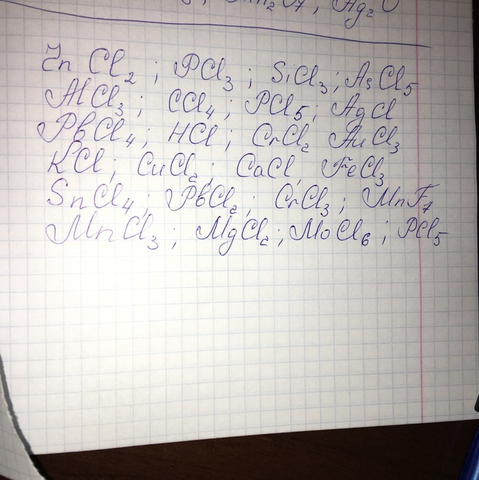 Mn₂O7, Ag₂O
ZnCl₂; PCl₃; SiCl₃; AsCl₅
AlCl₃; CCl₄; PCl₅; AgCl
PbCl₄; HCl; CrCl₂ AuCl₃
KCl; CuCl₂; CaCl, FeCl₃
SnCl₄; PbCl₂; CrCl₃; MnF₇
MnCl₃; MgCl₂; MoCl₆; PCl₅